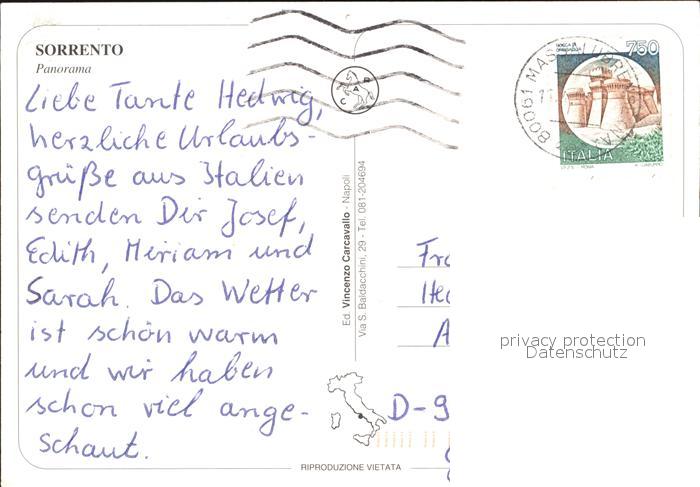 SORRENTO
Panorama
Liebe Tante Hedwig,
herzliche Urlaubs-
grüße aus Italien
senden Dir Josef,
Edith, Miriam und
Sarah. Das Wetter
ist schön warm
und wir haben
schon viel ange-
schaut.
Ed. Vincenzo Carcavallo - Napoli
Via S. Baldacchini, 29 - Tel. 081-204694
RIPRODUZIONE VIETATA
750
ITALIA
80061 MASSA LUBRENSE
privacy protection
Datenschutz
D-9